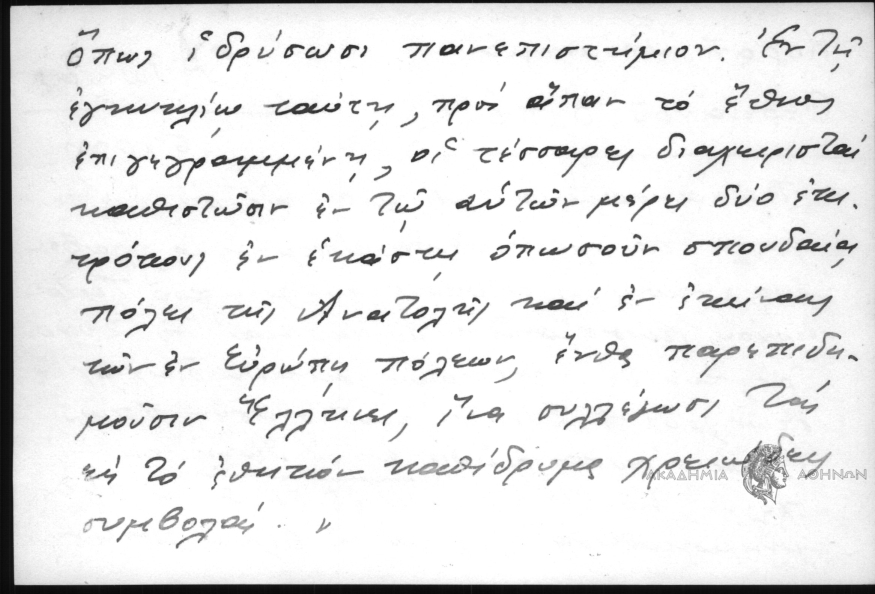 ὅπως ἱδρύσωσι πανεπιστήμιον. Ἐν τῇ
ἐγκυκλίῳ ταύτῃ, πρὸς ἅπαν τὸ ἔθνος
ἐπιγεγραμμένῃ, οἱ τέσσαρες διαχειρισταὶ
καθιστῶσιν ἐν τῷ αὐτῶν μέρει δύο ἐπι-
τρόπους ἐν ἑκάστῃ ὁπωσοῦν σπουδαίᾳ
πόλει τῆς Ἀνατολῆς καὶ ἐν ἐκείναις
τῶν ἐν Εὐρώπῃ πόλεων, ἔνθα παρεπιδη-
μοῦσιν Ἕλληνες, ἵνα συλλέγωσι τὰς
εἰς τὸ ἐθνικὸν καθίδρυμα χρειώδεις
συμβολάς. »
ΑΚΑΔΗΜΙΑ ΑΘΗΝΩΝ